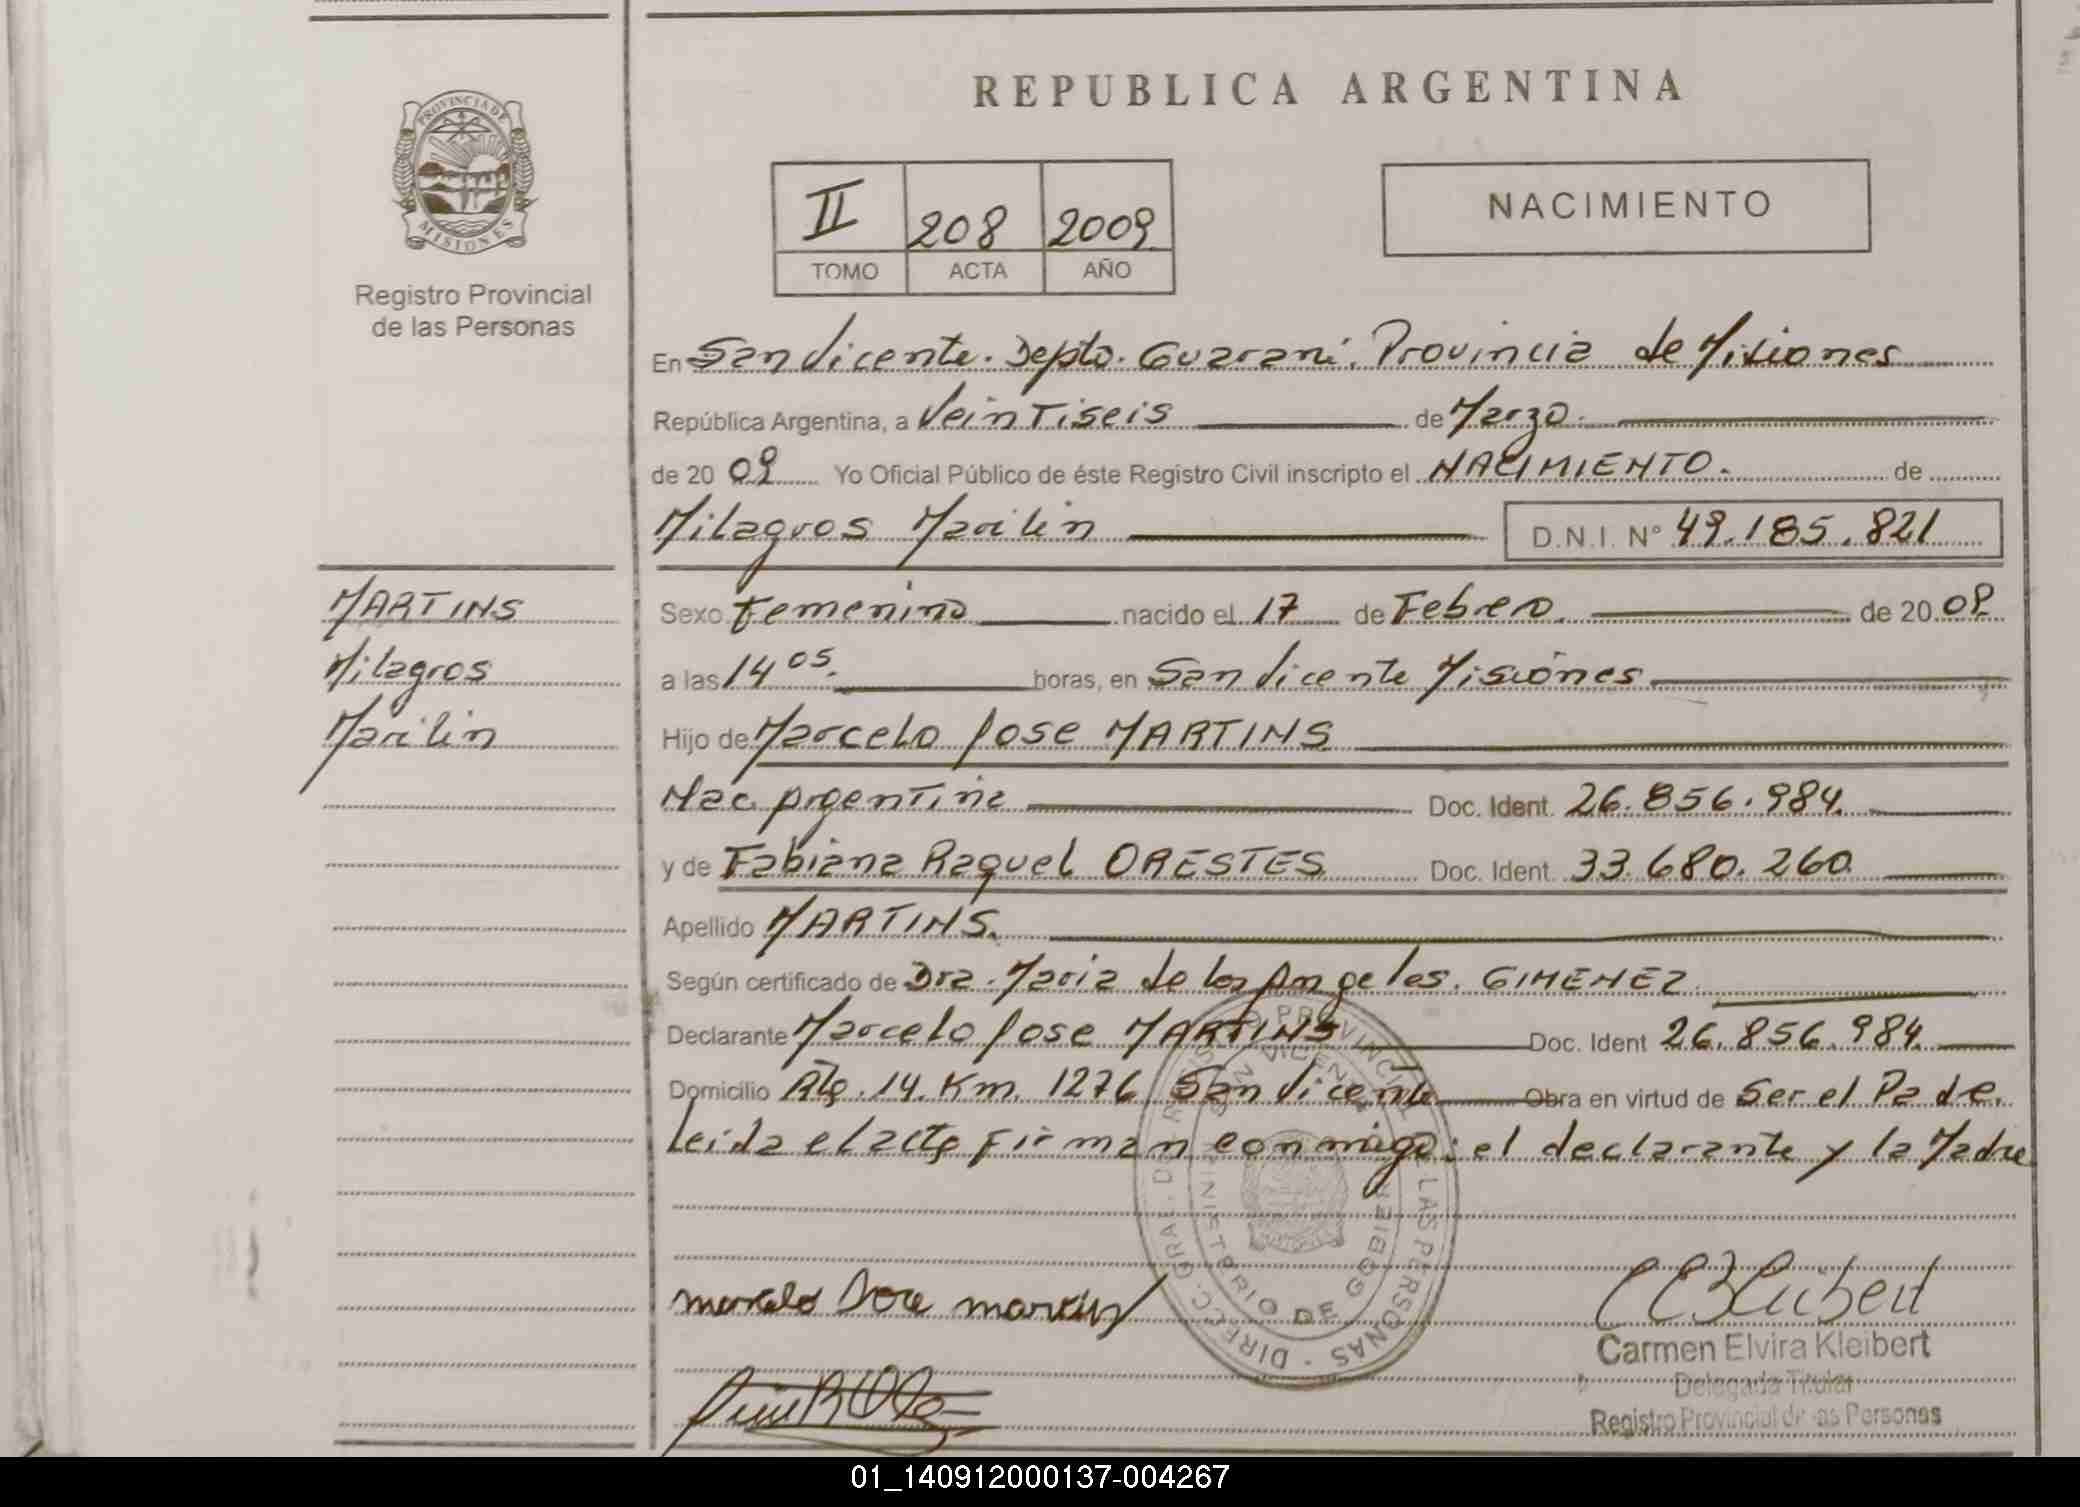 REPUBLICA ARGENTINA
PROVINCIA DE
MISIONES
Registro Provincial
de las Personas
II 208 2009
TOMO ACTA AÑO
NACIMIENTO
En San Vicente. Depto. Guaraní. Provincia de Misiones
República Argentina, a Veintiseis de Marzo.
de 20 09 Yo Oficial Público de éste Registro Civil inscripto el NACIMIENTO. de
Milagros Marilin D.N.I. N° 49.185.821
MARTINS
Milagros
Marilin
Sexo Femenino nacido el 17 de Febrero. de 20 09.
a las 14 05. horas, en San Vicente Misiones
Hijo de Marcelo Jose MARTINS
Nac. Argentina Doc. Ident. 26.856.984.
y de Fabiana Raquel ORESTES Doc. Ident. 33.680.260
Apellido MARTINS.
Según certificado de Dra. Maria de los Angeles. GIMENEZ
Declarante Marcelo Jose MARTINS Doc. Ident 26.856.984.
Domicilio Rta. 14. Km. 1276 San Vicente Obra en virtud de Ser el Padre.
Leida el acta firman conmigo: el declarante y la Madre
DIRECC. GRAL. DE REGISTRO PROVINCIAL DE LAS PERSONAS
SAN VICENTE
MINISTERIO DE GOBIERNO
Marcelo Jose Martins
Carmen Elvira Kleibert
Delegada Titular
Registro Provincial de las Personas
01_140912000137-004267